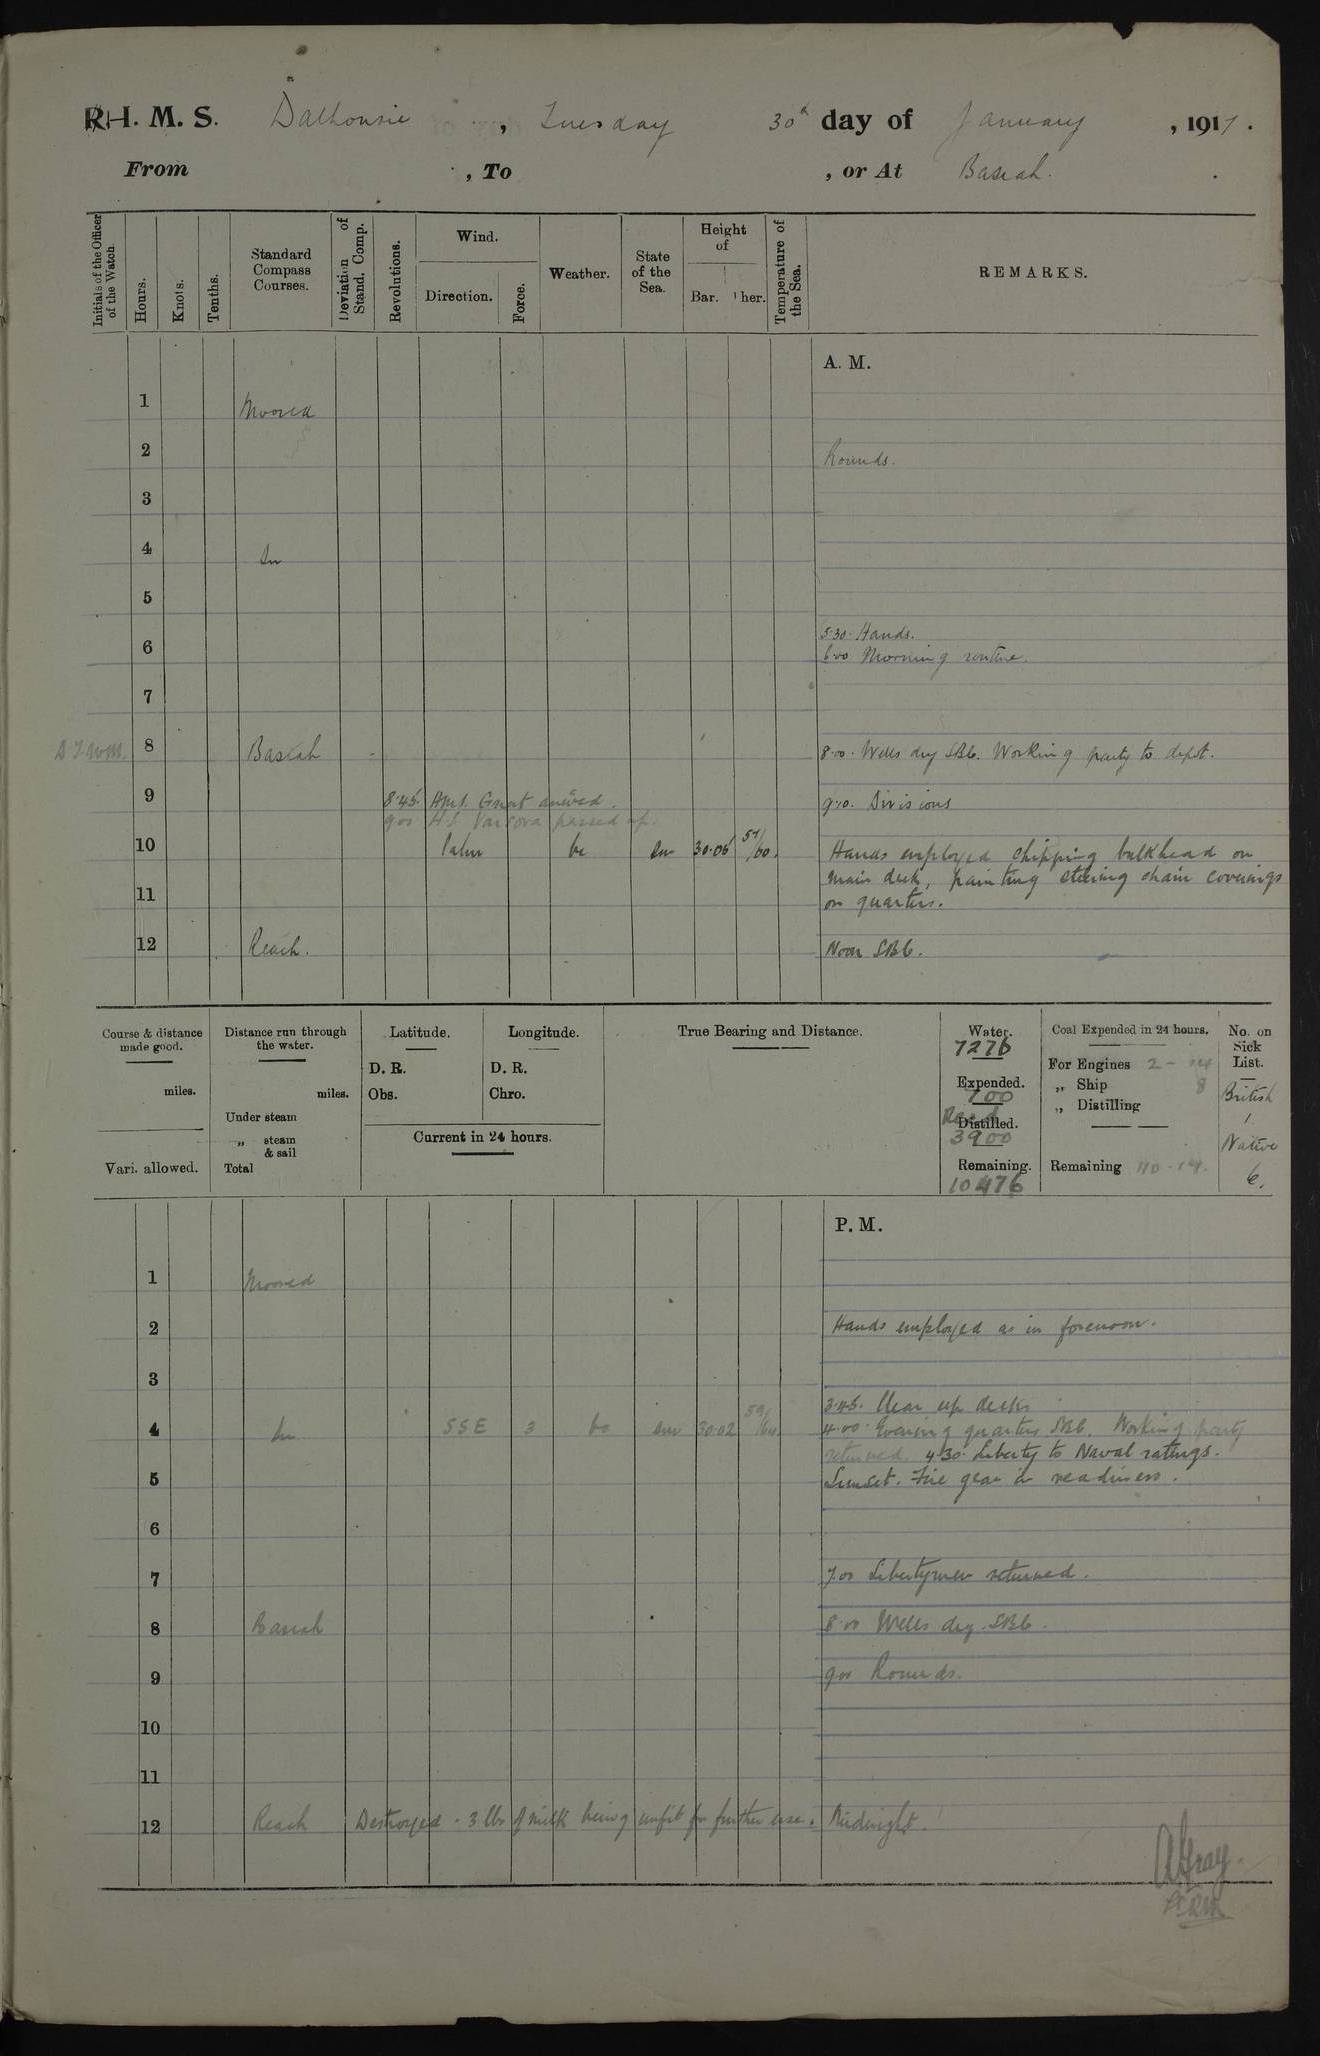 R.I.M.S. Dalhousie , Tuesday 30th day of January , 1917.
From , To , or At Basrah.
Initials of the Officer of the Watch.
Hours.
Knots.
Tenths.
Standard Compass Courses.
Deviation of Stand. Comp.
Revolutions.
Wind.
Direction.
Force.
Weather.
State of the Sea.
Height of
Bar.
Ther.
Temperature of the Sea.
REMARKS.
A. M.
1 Moored
2 Rounds.
3
4 In
5
5.30. Hands.
6 6.00 Morning routine.
7
8 Basrah 8.00. Wells dry SBC. Working party to depot.
9 8.45. Amt. arrived. 9.0. Divisions
9.00 H.S. Varsova passed up.
10 Calm bc sm 30.06 59/60. Hands employed chipping bulkhead on
main deck, painting steering chain coverings
11 on quarters.
12 Reach. Noon SBC.
Course & distance made good.
miles.
Vari. allowed.
Distance run through the water.
miles.
Under steam
„ steam & sail
Total
Latitude.
D. R.
Obs.
Longitude.
D. R.
Chro.
Current in 24 hours.
True Bearing and Distance.
Water.
7276
Expended.
700
Recd
Distilled.
3900
Remaining.
10476
Coal Expended in 24 hours.
For Engines 2 - 14
„ Ship 8
„ Distilling
Remaining 110 - 14.
No. on Sick List.
British
1
Native
6.
P. M.
1 Moored
2 Hands employed as in forenoon.
3
3.45. Clear up decks
4 In SSE 3 bc sm 30.02 59/64 4.00. Evening quarters SBC. Working party
returned. 4.30. Liberty to Naval ratings.
5 Sunset. Fire gear in readiness.
6
7 7.00 Libertymen returned.
8 Basrah 8.00 Wells dry. SBC.
9 9.00 Rounds.
10
11
12 Reach Destroyed - 3 lbs of milk being unfit for further use. Midnight.
AGray.